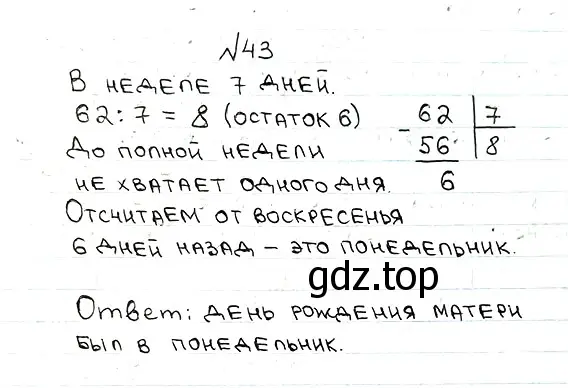 №43
В НЕДЕЛЕ 7 ДНЕЙ.
62:7 = 8 (ОСТАТОК 6)
62 7
- 56 8
6
ДО ПОЛНОЙ НЕДЕЛИ
НЕ ХВАТАЕТ ОДНОГО ДНЯ.
ОТСЧИТАЕМ ОТ ВОСКРЕСЕНЬЯ
6 ДНЕЙ НАЗАД – ЭТО ПОНЕДЕЛЬНИК.
gdz.top
Ответ: ДЕНЬ РОЖДЕНИЯ МАТЕРИ
БЫЛ В ПОНЕДЕЛЬНИК.